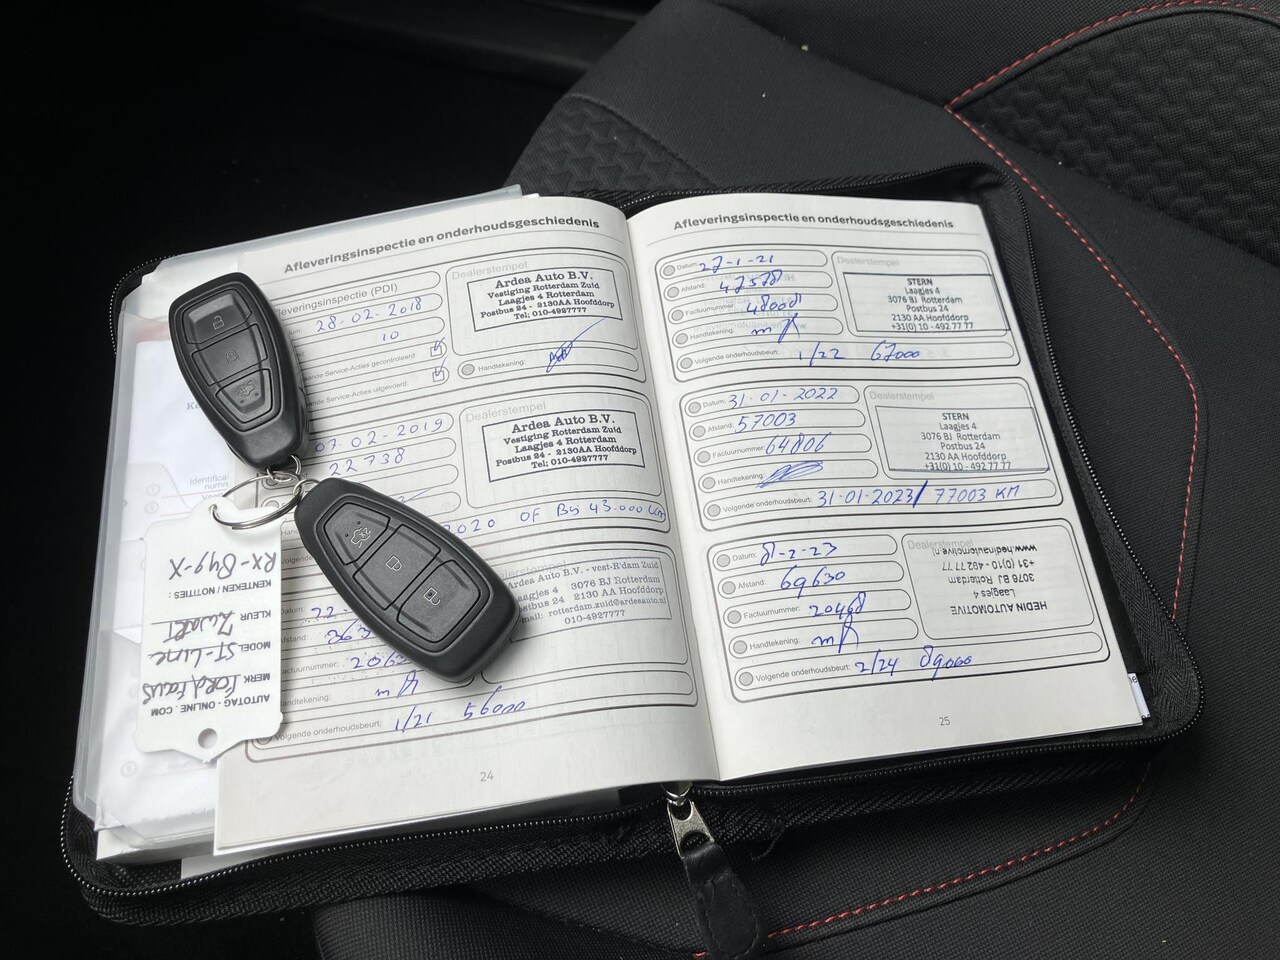 Afleveringsinspectie en onderhoudsgeschiedenis
leveringsinspectie (PDI)
28-02-2018
10
nde Service-Acties gecontroleerd:
Service-Acties uitgevoerd:
Dealerstempel
Ardea Auto B.V.
Vestiging Rotterdam Zuid
Laagjes 4 Rotterdam
Postbus 24 - 2130AA Hoofddorp
Tel; 010-4927777
Handtekening:
07-02-2019
22738
Dealerstempel
Ardea Auto B.V.
Vestiging Rotterdam Zuid
Laagjes 4 Rotterdam
Postbus 24 - 2130AA Hoofddorp
Tel; 010-4927777
2020 OF Bij 43.000 Km
Datum: 22-
Afstand: 363
Factuurnummer: 2063
Handtekening:
Volgende onderhoudsbeurt: 1/21 56000
Ardea Auto B.V. - vest-R'dam Zuid
Laagjes 4 3076 BJ Rotterdam
Postbus 24 2130 AA Hoofddorp
mail: rotterdam.zuid@ardeaauto.nl
010-4927777
24
Afleveringsinspectie en onderhoudsgeschiedenis
Datum: 27-1-21
Afstand: 47578
Factuurnummer: 48008
Handtekening:
Volgende onderhoudsbeurt: 1/22 67000
Dealerstempel
STERN
Laagjes 4
3076 BJ Rotterdam
Postbus 24
2130 AA Hoofddorp
+31(0) 10 - 492 77 77
Datum: 31-01-2022
Afstand: 57003
Factuurnummer: 64806
Handtekening:
Volgende onderhoudsbeurt: 31-01-2023/ 77003 KM
Dealerstempel
STERN
Laagjes 4
3076 BJ Rotterdam
Postbus 24
2130 AA Hoofddorp
+31(0) 10 - 492 77 77
Datum: 8-2-23
Afstand: 69630
Factuurnummer: 20468
Handtekening:
Volgende onderhoudsbeurt: 2/24 89000
Dealerstempel
HEDIN AUTOMOTIVE
Laagjes 4
3076 BJ Rotterdam
+31 (0)10 - 492 77 77
www.hedinautomotive.nl
25
AUTOTAG-ONLINE.COM
MERK Ford Focus
MODEL ST-Line
KLEUR Zwart
KENTEKEN / NOTITIES:
RX-849-X